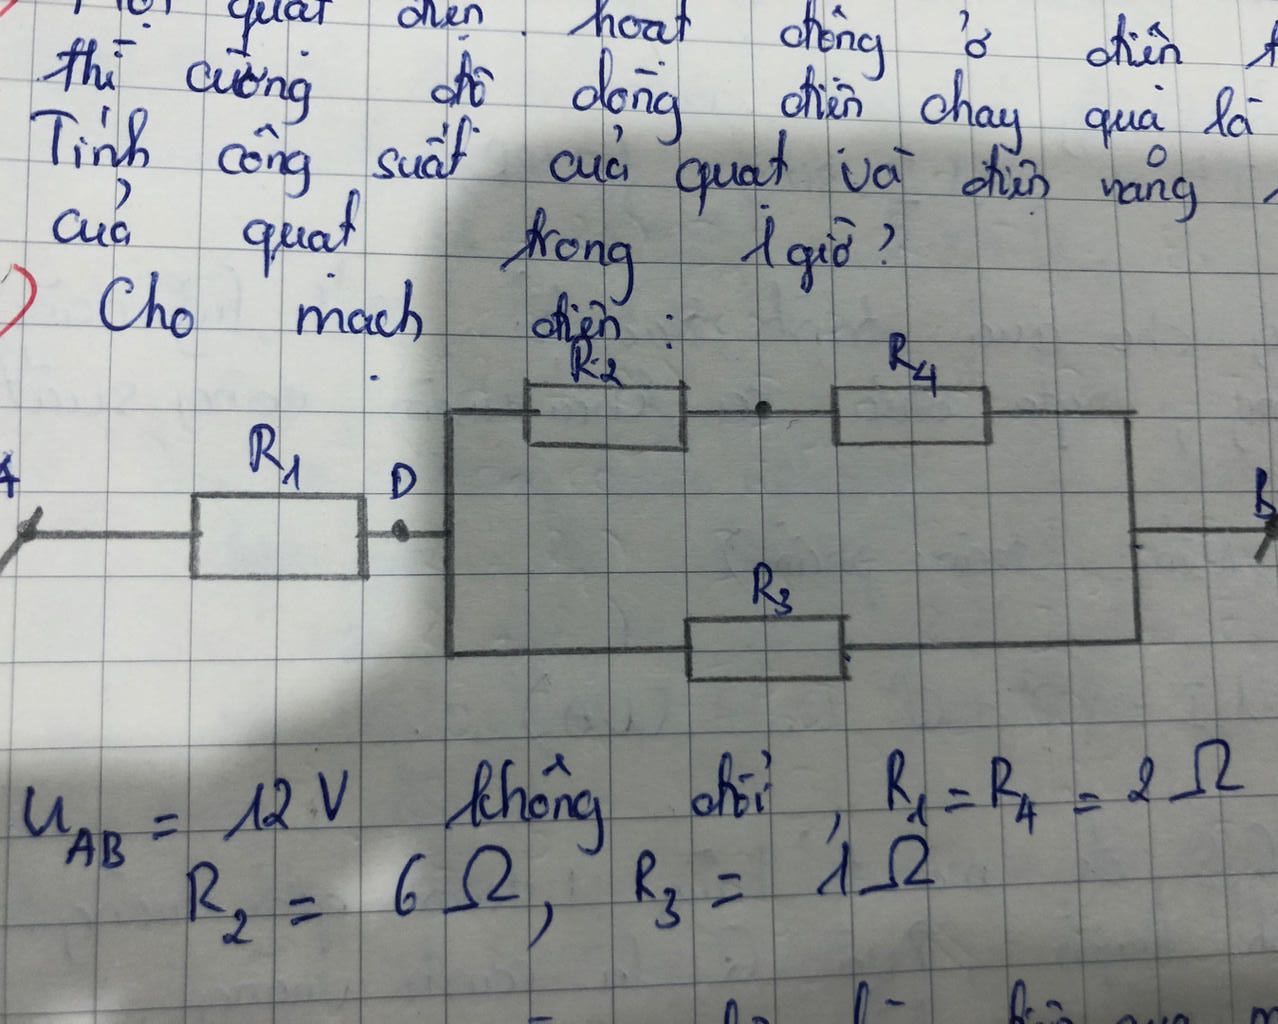 quạt điện hoạt động ở điện
thì cường độ dòng điện chạy qua là
Tính công suất của quạt và điện năng
của quạt trong 1 giờ?
) Cho mạch điện :
R2 R4
R1 D
B
R3
U_AB = 12 V không đổi, R1 = R4 = 2 Ω
R2 = 6 Ω, R3 = 1 Ω